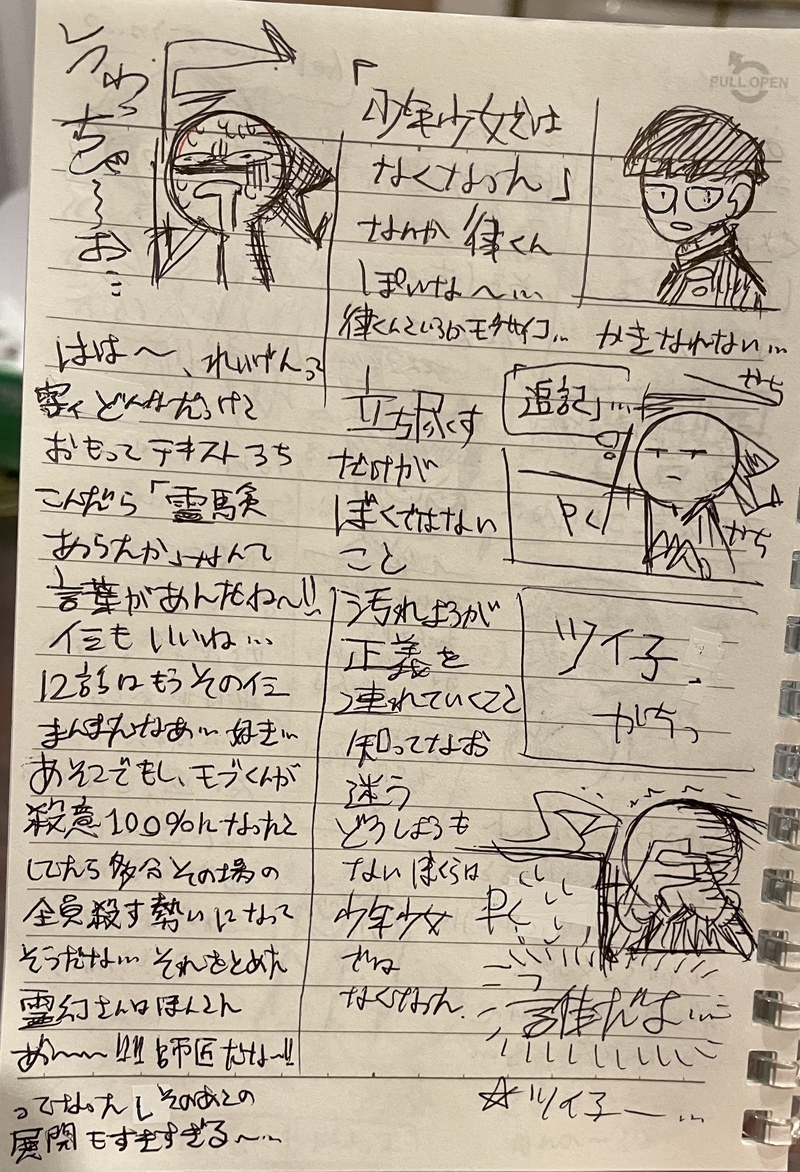 うわっ
ちゃ〜
お…
はは〜、れいげんって
字イどんなだっけと
おもってテキストうち
こんだら「霊験
あらたか」なんて
言葉があんだね〜!!
イミもいいね…
12話はもうそのイミ
まんまだなあ… 好き…
あそこでもし、モブくんが
殺意100%になったと
してたら多分その場の
全員殺す勢いになって
そうだな… それをとめた
霊幻さんはほんとさ
あ〜〜!!! 師匠だな〜!!
ってなったし そのあとの
展開もすきすぎる〜…
「少年少女では
なくなった」
なんか 律くん
ぽいな〜…
律くんていうかモブサイコ…
立ち尽くす
だけが
ぼくではない
こと
汚れようが
正義を
連れていくこと
知ってなお
迷う
どうしようも
ない ぼくらは
少年少女
では
なくなった
PULL OPEN
かきなれない…
追記」…
かち
PC
かち
ツイ子
かちっ
PC
誰だよ…
☆ツイ子ー…